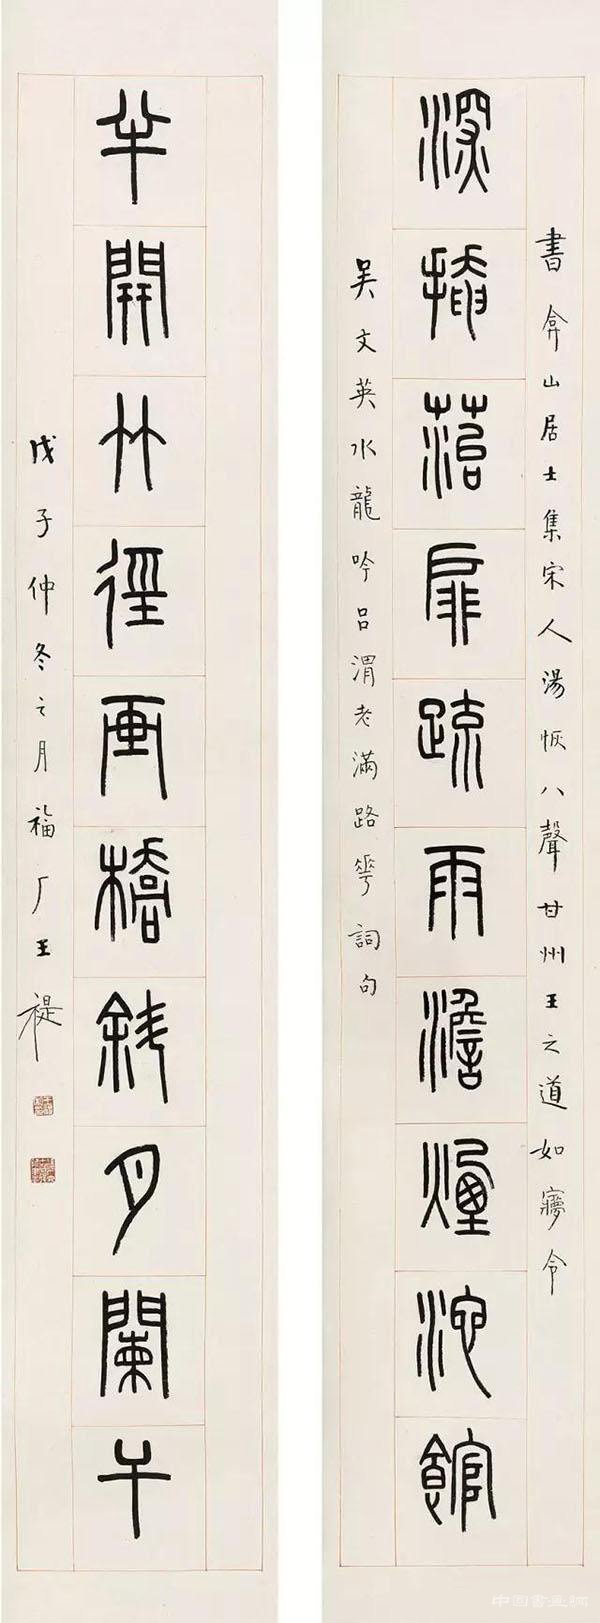 書弇山居士集宋人湯恢八聲甘州王之道如㝱令
深掩菭扉疏雨澹煙池館
吳文英水龍吟呂渭老滿路花詞句
半開竹徑畫橋斜月闌干
戊子仲冬之月福厂王禔